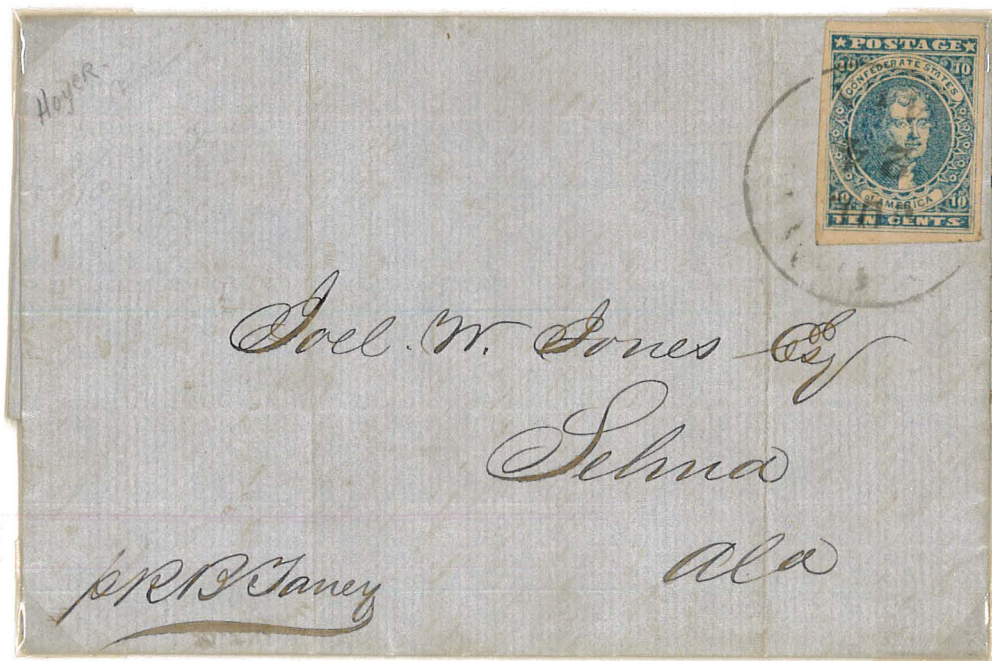 Hoyer-
★POSTAGE★
10 10
CONFEDERATE STATES
OF AMERICA
10 10
TEN CENTS
Joel. W. Jones Esq
Selma
Ala
p R B Taney